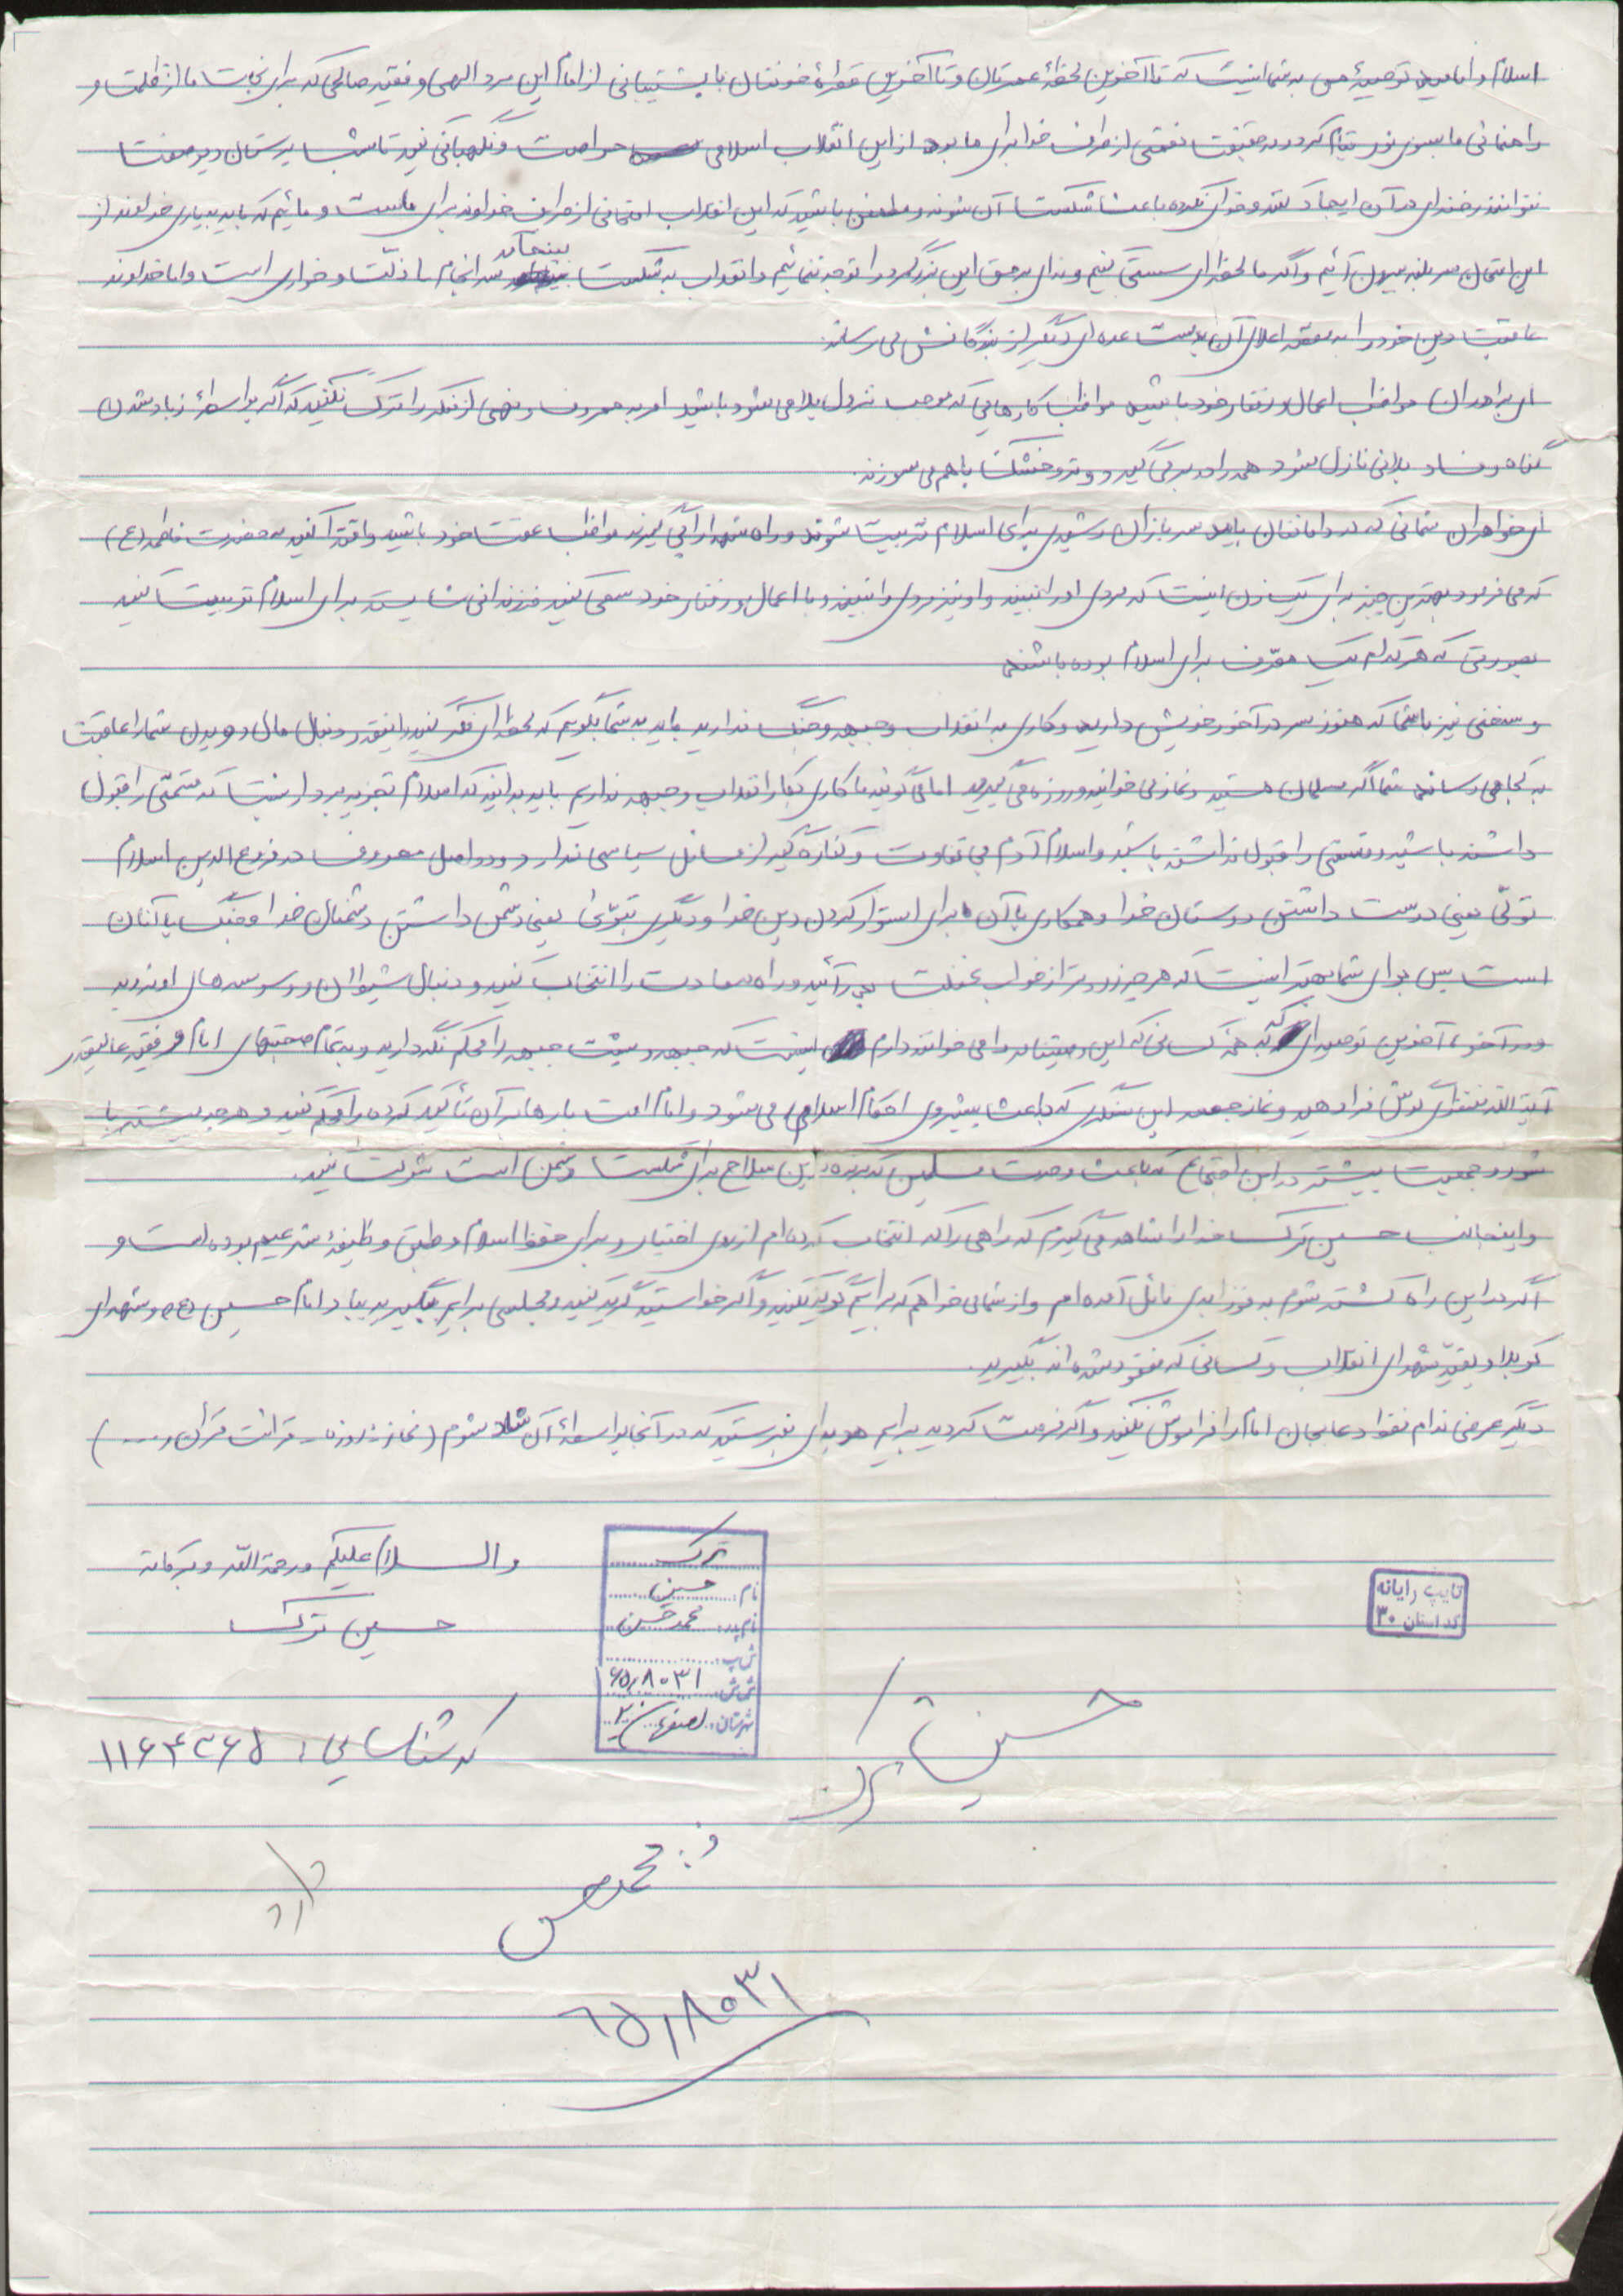 اسلام و اما امید توصیۀ من به شما اینست که تا آخرین لحظۀ عمرتان و تا آخرین قطرۀ خونتان با پشتیبانی از امام این مرد الهی و فقیه صالحی که برای نجات ما از ظلمت و
راهنمائی ما بسوی نور قیام کرد و در حقیقت نعمتی از طرف خدا برای ما بود از این انقلاب اسلامی حراست و نگهبانی کنید تا شب پرستان دیو صفت
نتوانند رخنه‌ای در آن ایجاد کنند و خدای نکرده باعث شکست آن شوند و مطمئن باشید که این انقلاب امتحانی از طرف خداوند برای ماست و مائیم که باید به یاری خداوند از
این امتحان سربلند بیرون آئیم و اگر ما لحظه‌ای سستی کنیم و ندای بر حق این بزرگمرد را توجه ننمائیم و انقلاب به شکست بینجامد سرانجام ما ذلّت و خواری است و اما خداوند
عاقبت دین خود را به مقصد اعلای آن بدست عده‌ای دیگر از بندگانش می‌رساند.
ای برادران مواظب اعمال و رفتار خود باشید مواظب کارهایی که موجب نزول بلا می‌شود باشید امر به معروف و نهی از منکر را ترک نکنید که اگر بواسطۀ زیاد شدن
گناه و فساد بلائی نازل شود همه را در بر می‌گیرد و تر و خشک با هم می‌سوزند.
ای خواهران شمائی که در دامانتان باید سربازان رشیدی برای اسلام تربیت شوند و راه شهدا را پی گیرند مواظب عفت خود باشید و اقتدا کنید به حضرت فاطمه (ع)
که می‌فرمود بهترین چیز برای یک زن اینست که مردی او را نبیند و او نیز مردی را نبیند و با اعمال و رفتار خود سعی کنید فرزندانی شایسته برای اسلام تربیت کنید
بصورتی که هر کدام یک معرّف برای اسلام بوده باشند
و سخنی نیز با شما که هنوز سر در آخور خویش دارید و کاری به انقلاب و جبهه و جنگ ندارید باید به شما بگویم که لحظه‌ای فکر کنید اینقدر دنبال مال دویدن شما را عاقبت
به کجا می‌رساند شما اگر مسلمان هستید و نماز می‌خوانید و روزه می‌گیرید اما می‌گوئید ما کاری بکار انقلاب و جبهه نداریم باید بدانید که اسلام تجزیه بردار نیست که قسمتی را قبول
داشته باشید و قسمتی را قبول نداشته باشید و اسلام آدم بی تفاوت و کناره گیر از مسائل سیاسی ندارد و دو اصل معروف در فروع الدین اسلام
تولّی یعنی دوست داشتن دوستان خدا و همکاری با آن برای استوار کردن دین خدا و دیگری تبرّی یعنی دشمن داشتن دشمنان خدا و جنگ با آنان
است پس برای شما بهتر اینست که هر چه زودتر از خواب غفلت بدر آئید و راه سعادت را انتخاب کنید و دنبال شیطان و وسوسه‌های او نروید
و در آخر، آخرین توصیه‌ای که به همۀ کسانی که این وصیتنامه را می‌خوانند دارم اینست که جبهه و پشت جبهه را محکم نگه دارید و به تمام صحبتهای امام و فقیه عالیقدر
آیت الله منتظری گوش فرا دهید و نماز جمعه این سنگری که باعث پیشروی احکام اسلامی می‌شود و امام امت بارها بر آن تأکید کرده را محکم کنید و هر چه بیشتر با
شور و جمعیت بیشتر در این اجتماع که باعث وحدت مسلمین که برنده‌ترین سلاح برای شکست دشمن است شرکت کنید.
و اینجانب حسین ترک خدا را شاهد می‌گیرم که راهی را که انتخاب کرده‌ام از روی اختیار و برای حفظ اسلام و طبق وظیفۀ شرعیم بوده است و
اگر در این راه کشته شوم به فوز ابدی نائل آمده‌ام و از شما می‌خواهم که برایم گریه نکنید و اگر خواستید گریه کنید و مجلسی برایم بگیرید بیاد امام حسین (ع) و شهدای
کربلا و بقیۀ شهدای انقلاب و کسانی که مفقود شده‌اند بگیرید.
دیگر عرضی ندارم فقط دعا بجان امام را فراموش نکنید و اگر فرصت کردید برایم هدیه‌ای بفرستید که در آنجا بواسطۀ آن شاد شوم (نماز - روزه - قرائت قرآن و ...)
والسلام علیکم و رحمة الله و برکاته
حسین ترک
ترک
نام: حسین
نام پدر: محمدحسن
ش پ:
ش ش: ۶۵٫۸۰۳۱
شهرستان: اصفهان
تایپ رایانه
کد استان ۳۰
حسین ترک
کد شناسایی: ۱۱۶۴۳۶۵
ف: محمدحسن
دارد
۶۵٫۸۰۳۱